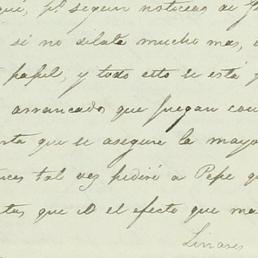 qué, pr. segun noticias de
si no silata mucho mas,
papel, y todo esto se está
arrancado que juegan con
que se asegure la mayo
tal vez pediré a Pepe qu
que el efecto que ma
Linares